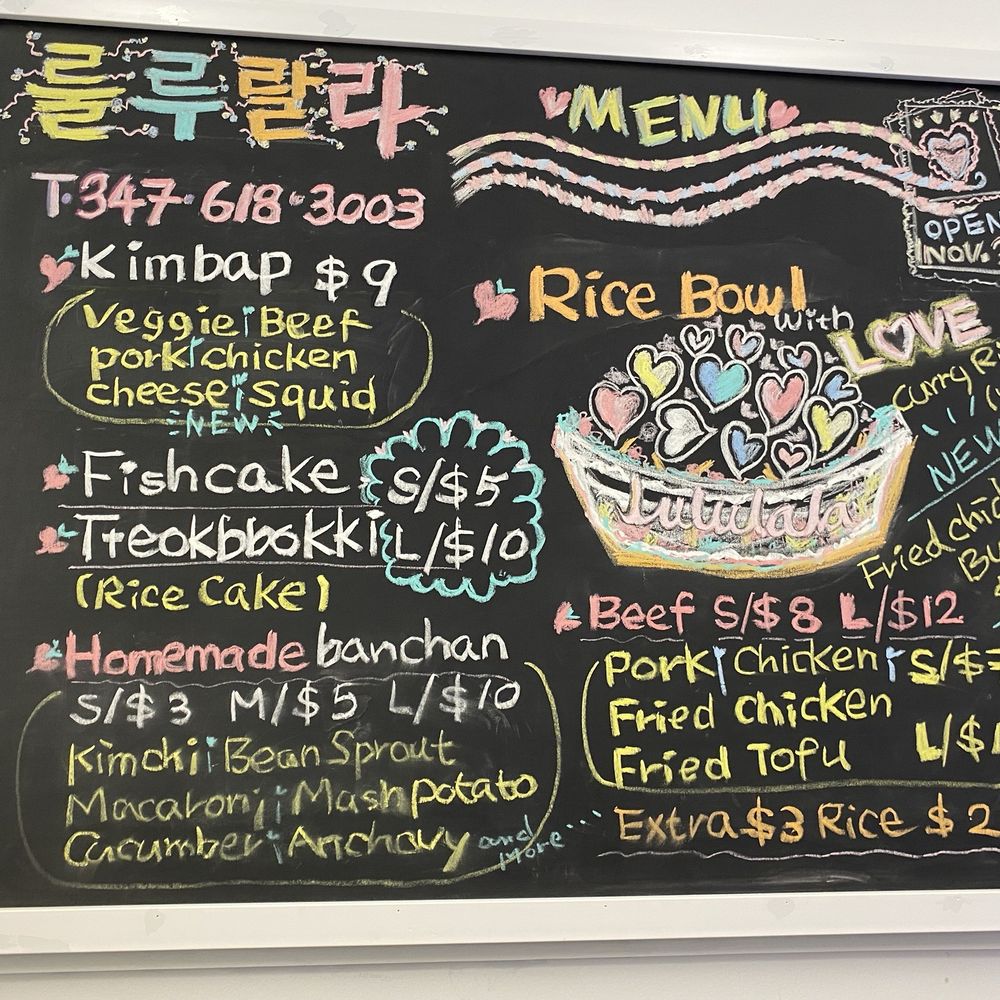 룰루랄라
T.347.618.3003
Kimbap $9
Veggie Beef
pork chicken
cheese Squid
NEW
Fishcake S/$5
Treokbbokki L/$10
(Rice Cake)
Homemade banchan
S/$3 M/$5 L/$10
Kimchi Bean Sprout
Macaroni Mash potato
Cucumber Anchavy and More
MENU
OPEN
NOV.
Rice Bowl
with
LOVE
Curry
NEW
Lululala
Fried
Beef S/$8 L/$12
Pork Chicken S/$
Fried chicken
Fried Tofu L/$1
Extra $3 Rice $2